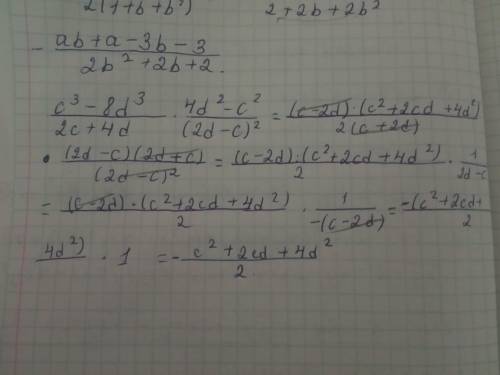 2(1+b+b²)   2+2b+2b²
- (ab+a-3b-3)/(2b²+2b+2).
(c³-8d³)/(2c+4d) · (4d²-c²)/(2d-c)² = ((c-2d)·(c²+2cd+4d²))/(2(c+2d))
· ((2d-c)(2d+c))/(2d-c)² = ((c-2d)·(c²+2cd+4d²))/2 · 1/(2d-c
= ((c-2d)·(c²+2cd+4d²))/2 · 1/(-(c-2d)) = (-(c²+2cd+)/2
4d²) · 1 = - (c²+2cd+4d²)/2